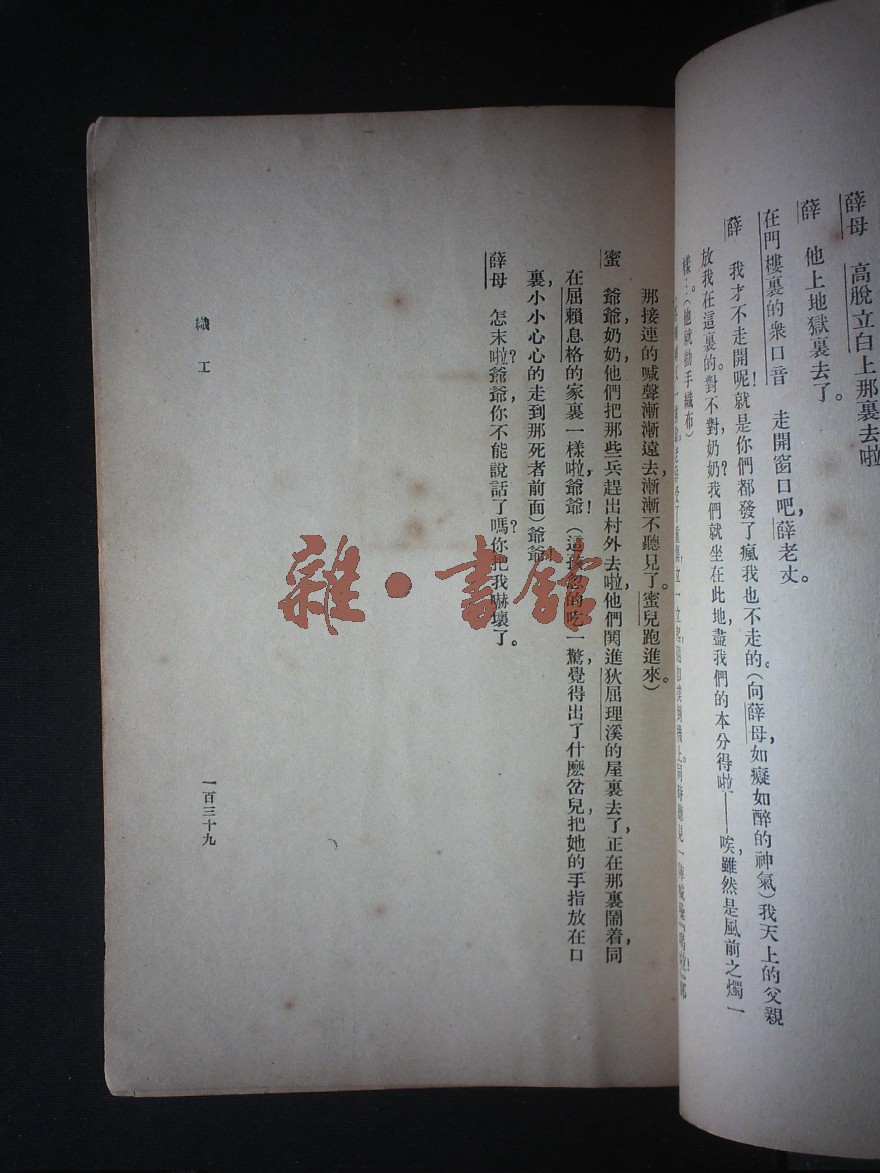 薛母　高脫立白上那裏去啦
薛　他上地獄裏去了。
在門樓裏的衆口音　走開窗口吧，薛老丈。
薛　我才不走開呢！就是你們都發了瘋我也不走的。（向薛母，如癡如醉的神氣）我天上的父親
放我在這裏的。對不對，奶奶？我們就坐在此地，盡我們的本分得啦——唉，雖然是風前之燭一
樣…（他就動手織布）
那接連的喊聲漸漸遠去，漸漸不聽見了。蜜兒跑進來。）
蜜　爺爺，奶奶，他們把那些兵趕出村外去啦，他們鬨進狄屈理溪的屋裏去了，正在那裏鬧着，同
在屈賴息格的家裏一樣啦，爺爺！（這孩忽的吃一驚，覺得出了什麽岔兒，把她的手指放在口
裏，小小心心的走到那死者前面）爺爺！
薛母　怎末啦？爺爺，你不能說話了嗎？你把我嚇壞了。
織工
一百三十九
雜·書館